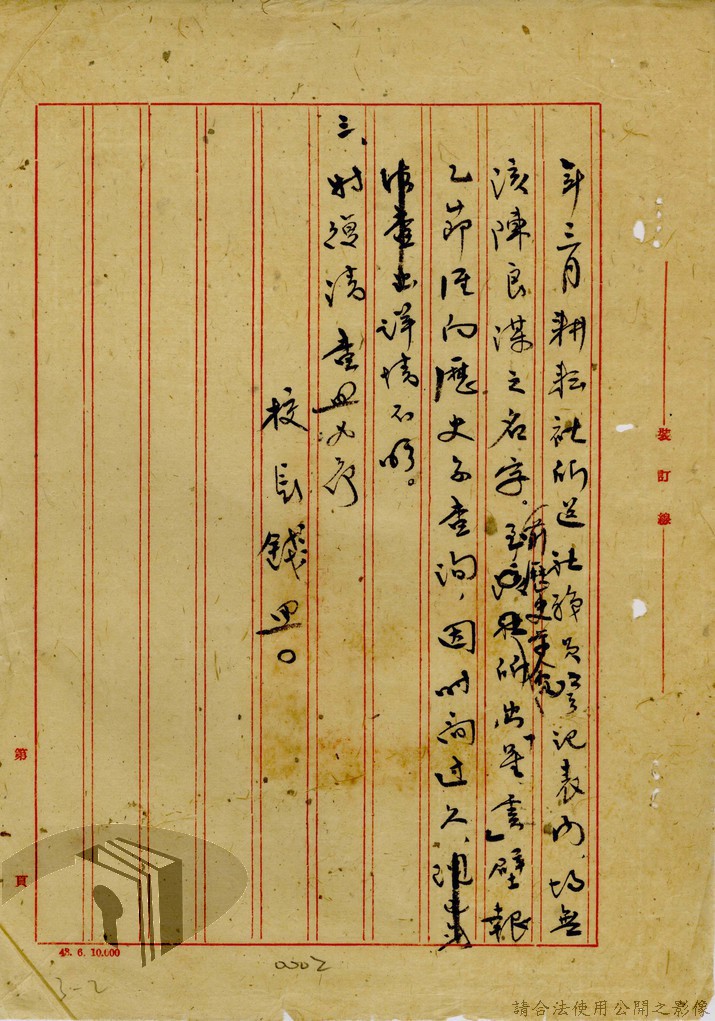 年三月耕耘社所送社務員登記表內,均無
該陳良謀之名字。至該社所出「星雲」壁報
前歷史學系
乙節經向歷史系查詢,因時間過久,
詳情不明。
三、特復請查照為荷
校長錢思○
裝訂線
第
頁
43. 6. 10.000
0002
3-2
請合法使用公開之影像